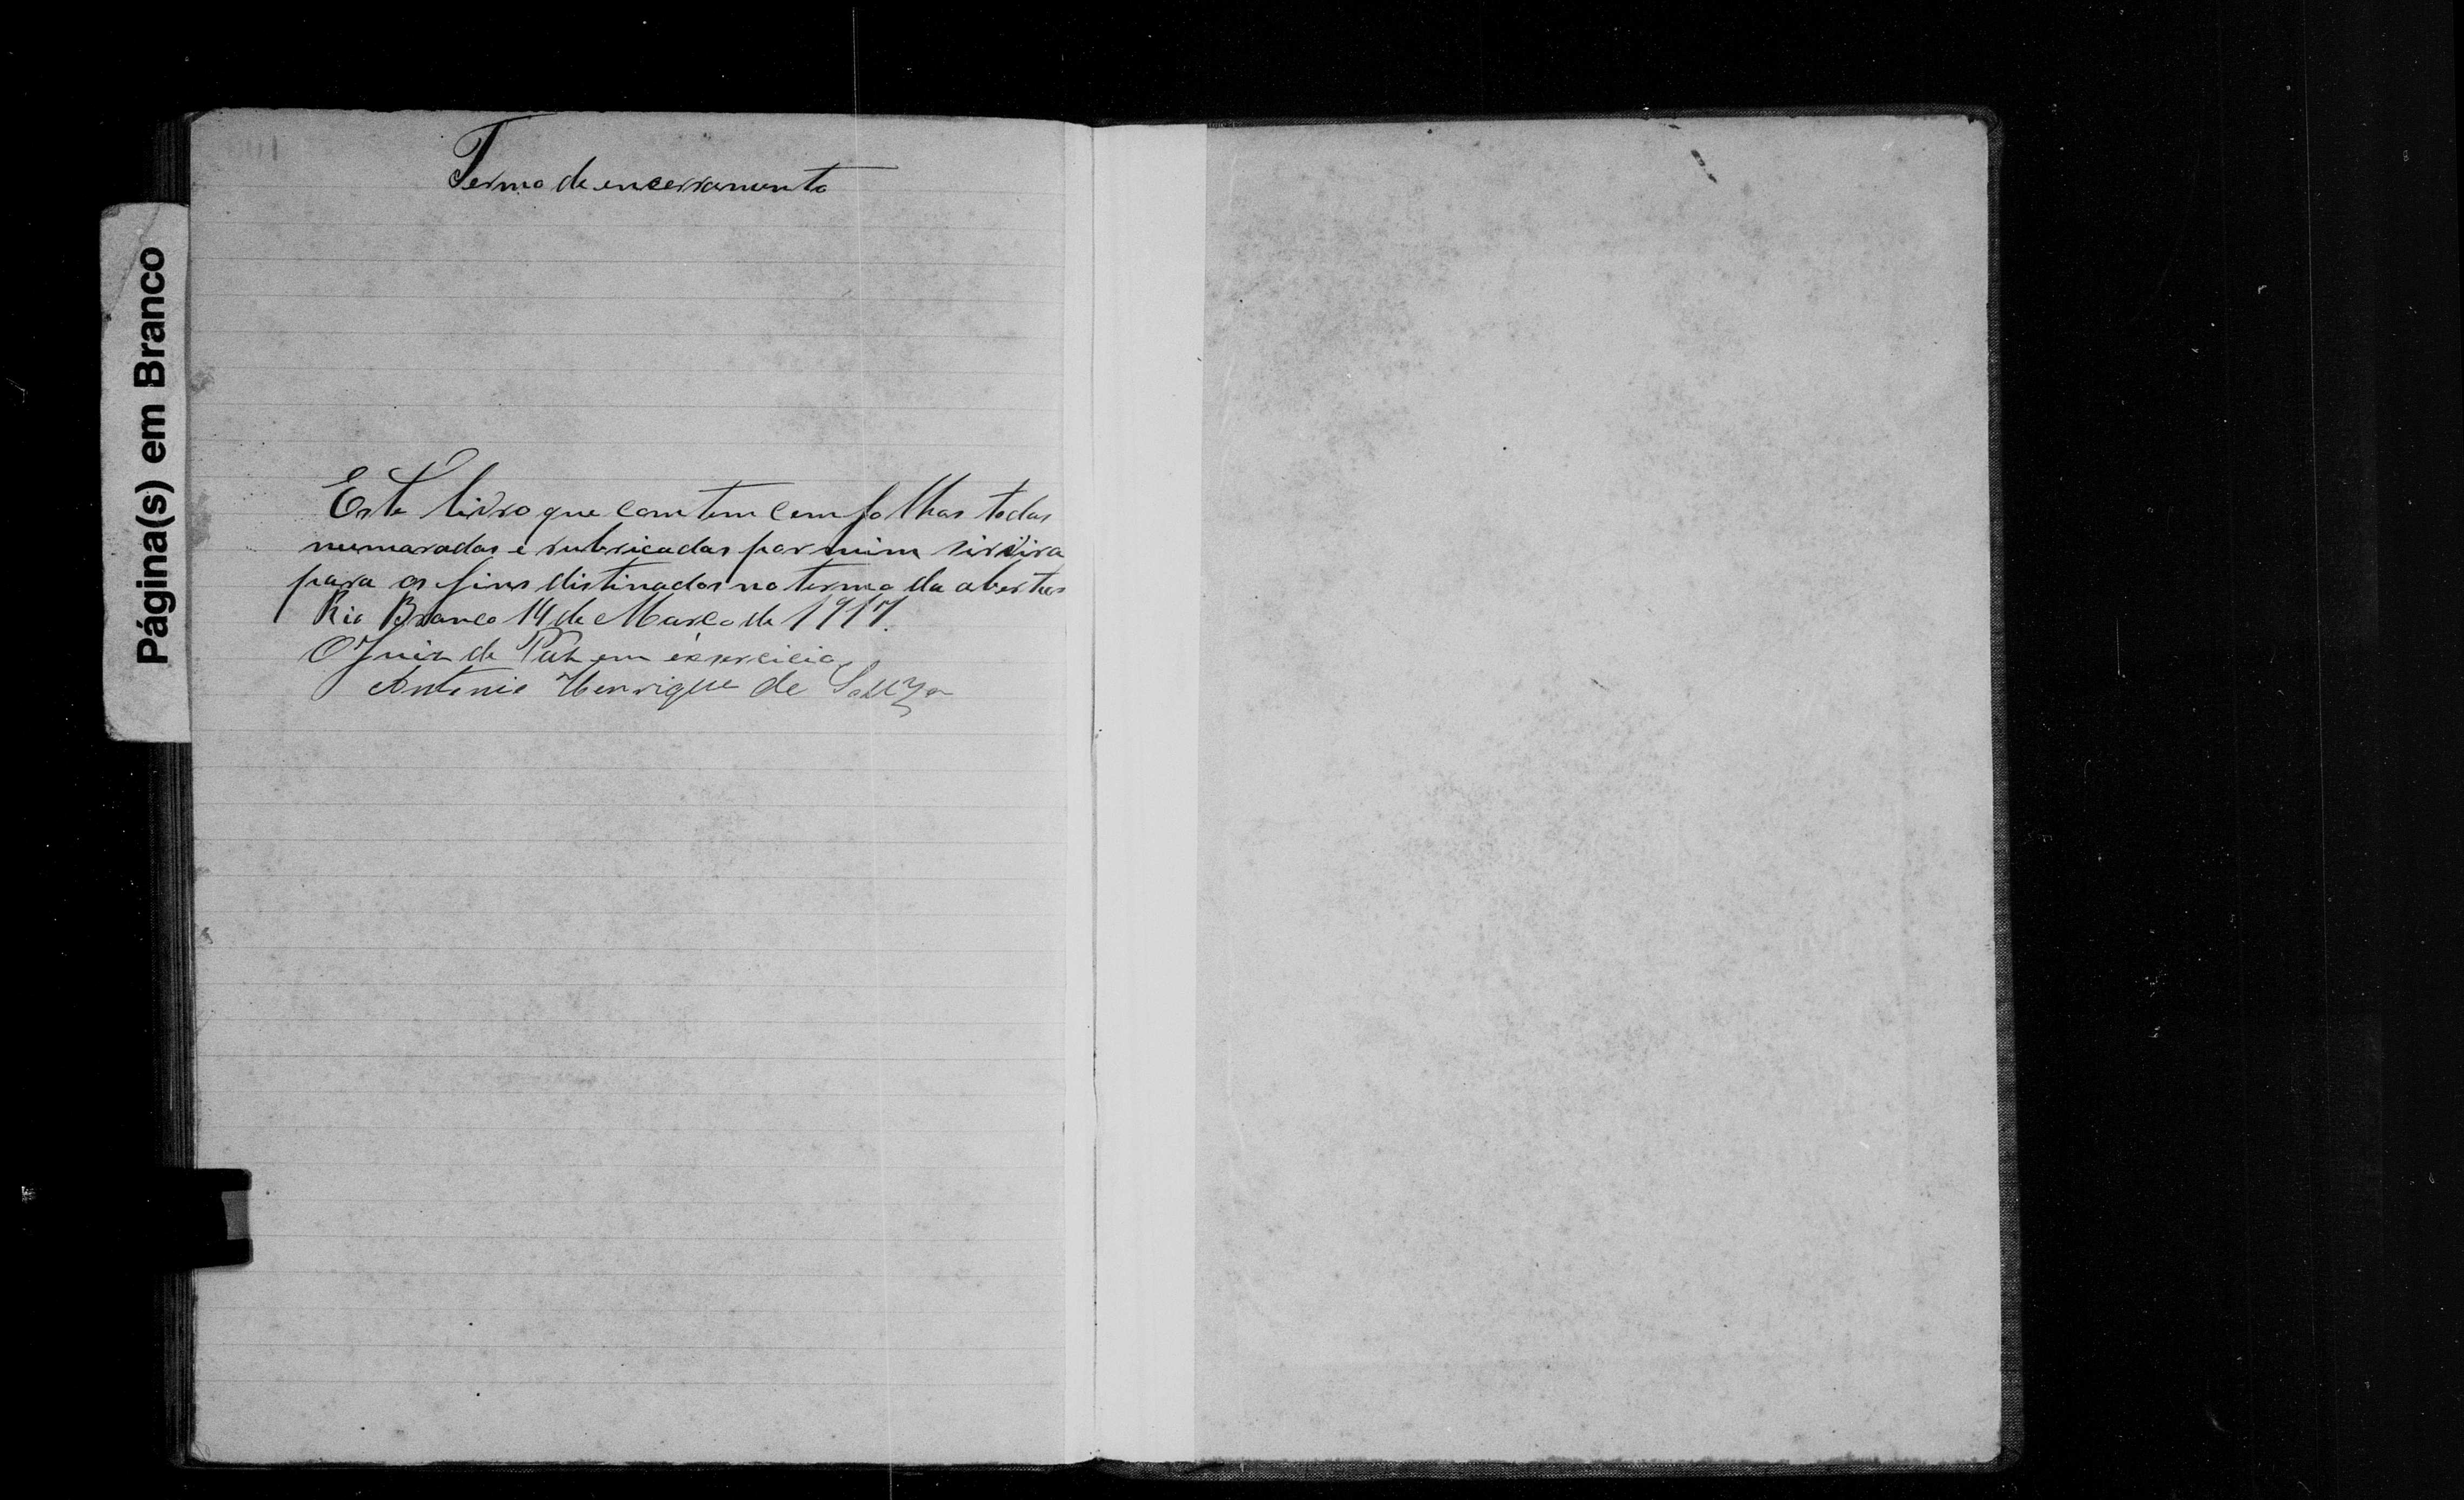 Página(s) em Branco
Termo de encerramento
Este livro que comtem cem folhas todas
numaradas e rubricadas por mim sirvira
para os fins distinados no termo da abertura
Rio Branco 14 de Março de 1917.
O Juiz de Paz em exsercicio
Antonio Henrique de Souza